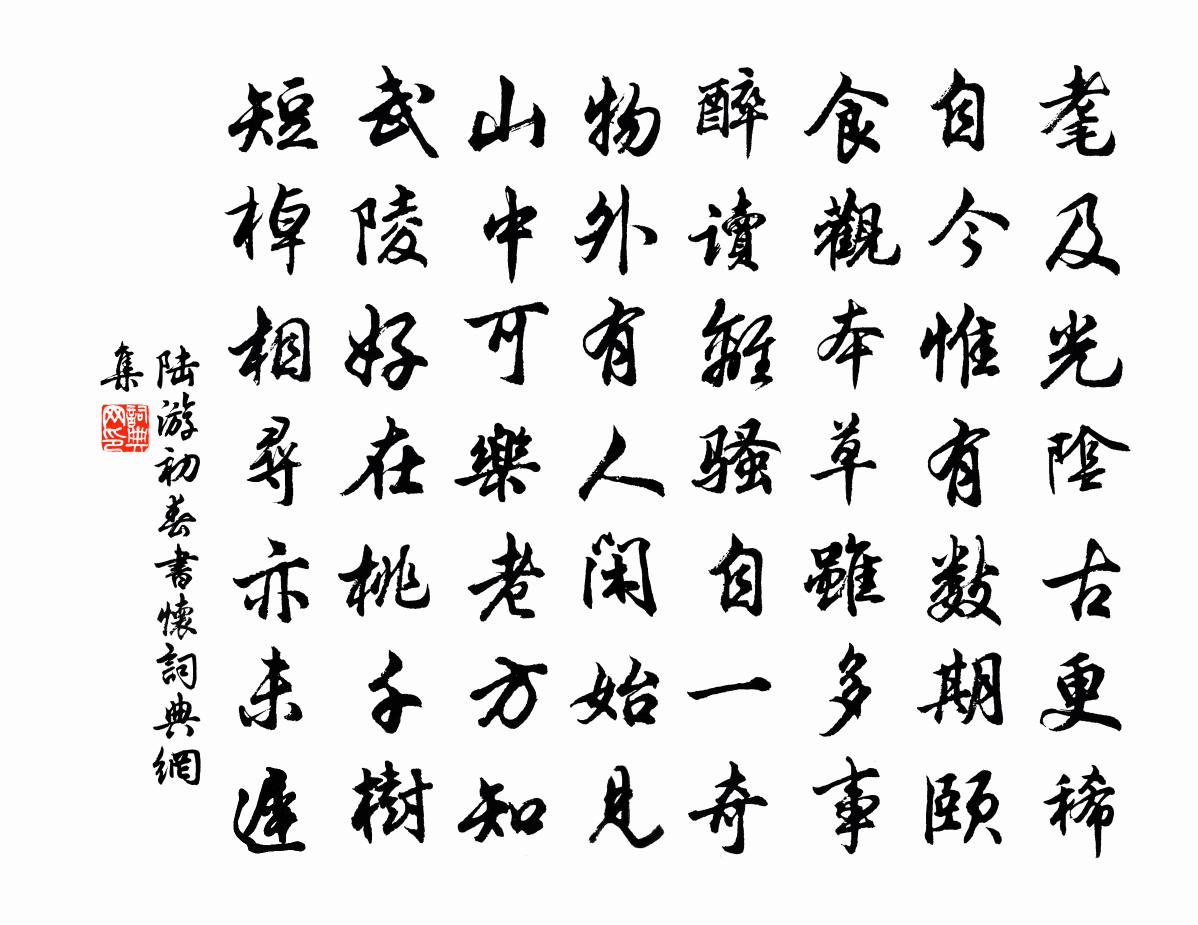 耄及光陰古更稀
自今惟有數期頤
食觀本草雖多事
醉讀離騷自一奇
物外有人閑始見
山中可樂老方知
武陵好在桃千樹
短棹相尋亦未遲
陆游初春書懷詞典網
集
詞典
网印